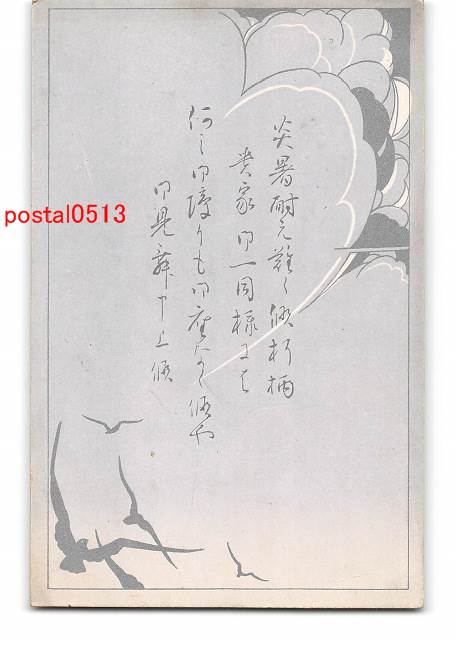 炎暑耐え難く候折柄
貴家御一同様には
何之御障りも御座なく候や
御見舞申上候
postal0513